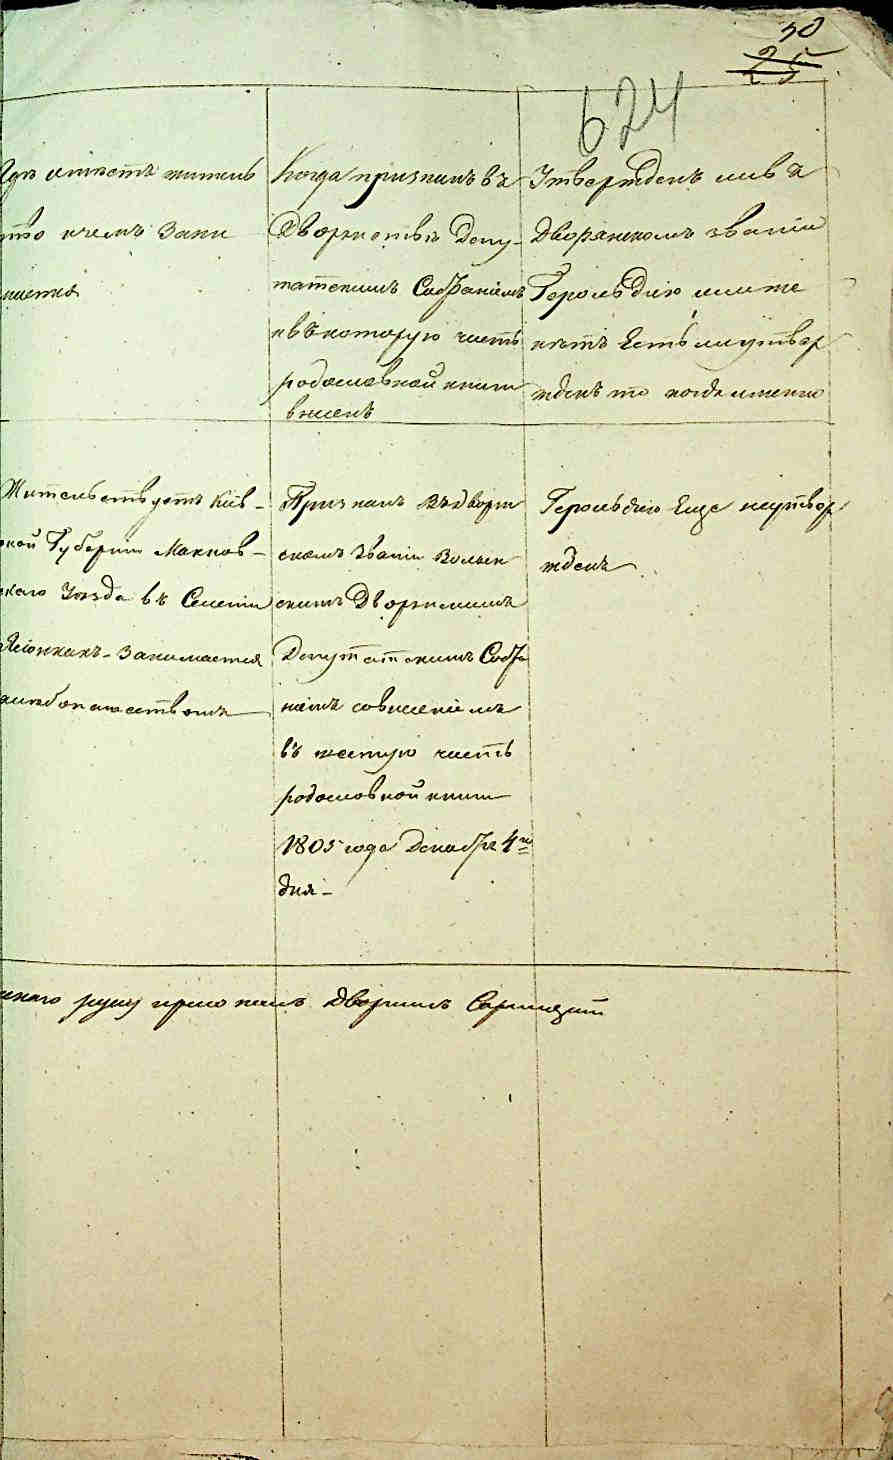 50
25
624
Где имеетъ житель
ство и чемъ Зани
мается
Когда признанъ въ
Дворянствѣ Депу-
татскимъ Собраніемъ
и въ которую часть
родословной книги
внесенъ
Утвержденъ ли въ
Дворянскомъ званіи
Герольдіею или же
нѣтъ Естьли утвер
жденъ то когда именно
Жительствуетъ Кіев-
ской Губерніи Махнов-
скаго Уезда въ Селеніи
Занимается
хлебопашествомъ
Признанъ въ дворян
скомъ Званіи Волын
скимъ Дворянскимъ
Депутатскимъ Собра
ніемъ совнесеніемъ
въ шестую часть
родословной книги
1805 года Декабря 4го
дня-
Герольдіею Еще неутвер
жденъ
руку приложилъ Дворянинъ